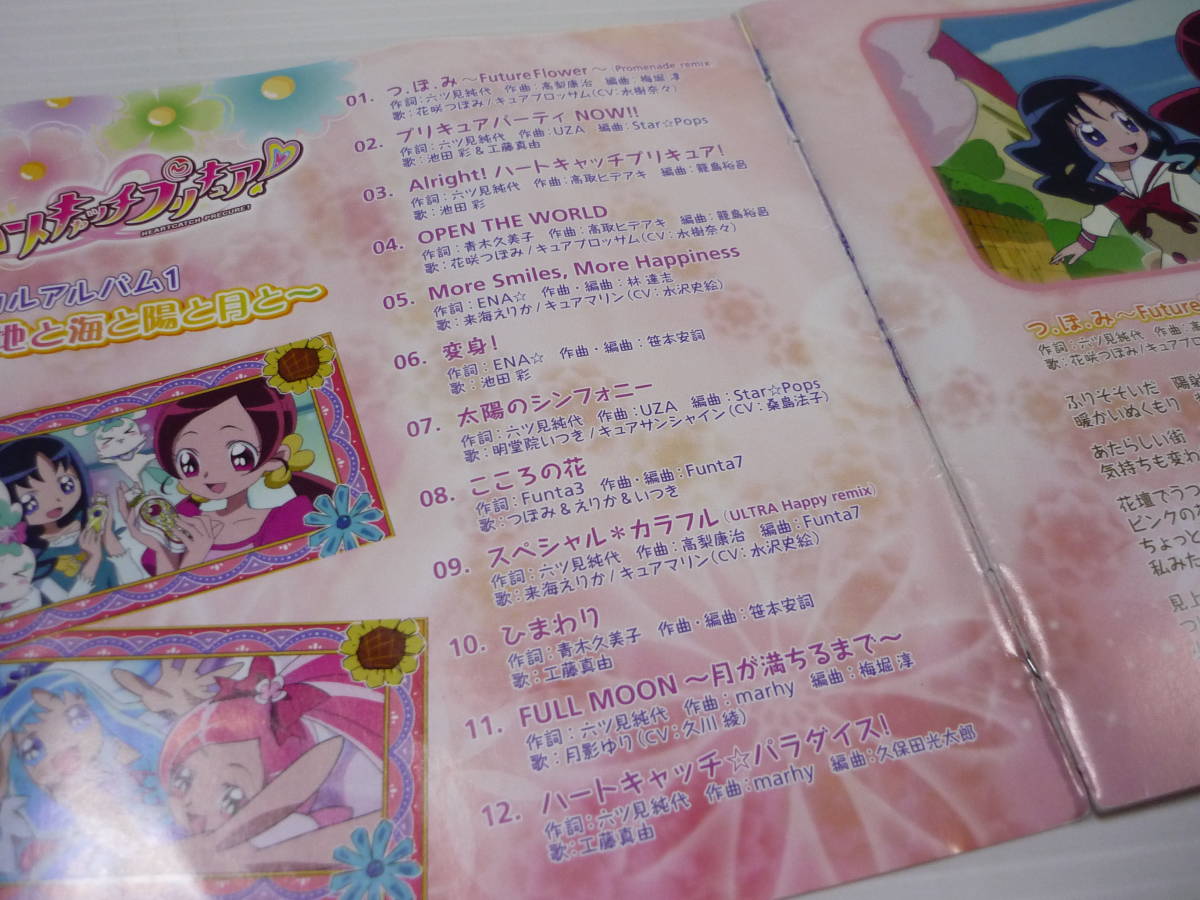 ハートキャッチプリキュア!
HEARTCATCH-PRECURE!
ルアルバム1
地と海と陽と月と〜
01. つ・ぼ・み 〜Future Flower〜 (Promenade remix)
作詞:六ツ見純代 作曲:高梨康治 編曲:梅堀 淳
歌:花咲つぼみ/キュアブロッサム(CV:水樹奈々)
02. プリキュアパーティ NOW!!
作詞:六ツ見純代 作曲:UZA 編曲:Star☆Pops
歌:池田 彩&工藤真由
03. Alright! ハートキャッチプリキュア!
作詞:六ツ見純代 作曲:高取ヒデアキ 編曲:籠島裕昌
歌:池田 彩
04. OPEN THE WORLD
作詞:青木久美子 作曲:高取ヒデアキ 編曲:籠島裕昌
歌:花咲つぼみ/キュアブロッサム(CV:水樹奈々)
05. More Smiles, More Happiness
作詞:ENA☆ 作曲・編曲:林 達志
歌:来海えりか/キュアマリン(CV:水沢史絵)
06. 変身!
作詞:ENA☆ 作曲・編曲:笹本安詞
歌:池田 彩
07. 太陽のシンフォニー
作詞:六ツ見純代 作曲:UZA 編曲:Star☆Pops
歌:明堂院いつき/キュアサンシャイン(CV:桑島法子)
08. こころの花
作詞:Funta3 作曲・編曲:Funta7
歌:つぼみ&えりか&いつき
09. スペシャル*カラフル (ULTRA Happy remix)
作詞:六ツ見純代 作曲:高梨康治 編曲:Funta7
歌:来海えりか/キュアマリン(CV:水沢史絵)
10. ひまわり
作詞:青木久美子 作曲・編曲:笹本安詞
歌:工藤真由
11. FULL MOON 〜月が満ちるまで〜
作詞:六ツ見純代 作曲:marhy 編曲:梅堀 淳
歌:月影ゆり(CV:久川 綾)
12. ハートキャッチ☆パラダイス!
作詞:六ツ見純代 作曲:marhy 編曲:久保田光太郎
歌:工藤真由
つ・ぼ・み 〜Future
作詞:六ツ見純代 作曲:
歌:花咲つぼみ/キュアブ
ふりそそいだ 陽射
暖かいぬくもり
あたらしい街
気持ちも変わ
花壇でうつ
ピンクの
ちょっと
私みた
見上
つ